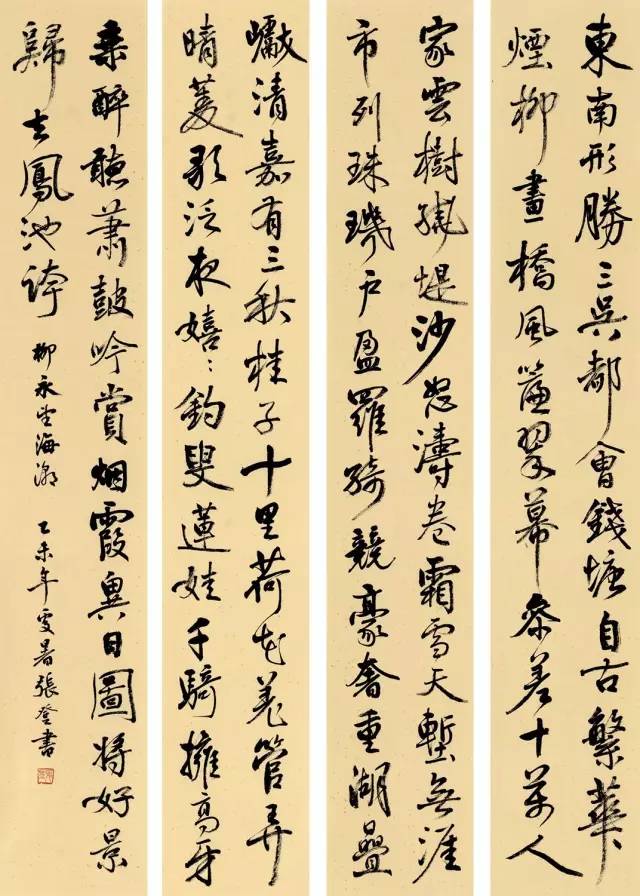 東南形勝三吳都會錢塘自古繁華
煙柳畫橋風簾翠幕參差十萬人
家雲樹繞堤沙怒濤卷霜雪天塹無涯
市列珠璣戶盈羅綺競豪奢重湖疊
巘清嘉有三秋桂子十里荷花羌管弄
晴菱歌泛夜嬉〻釣叟蓮娃千騎擁高牙
乘醉聽蕭鼓吟賞烟霞異日圖將好景
歸去鳳池誇 柳永望海潮 乙未年處暑張登書